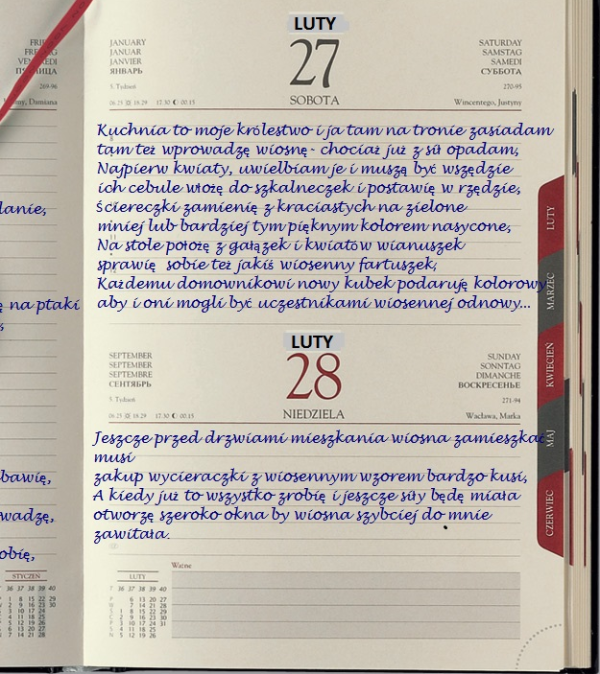 LUTY
27
SOBOTA
JANUARY
JANUAR
JANVIER
ЯНВАРЬ
SATURDAY
SAMSTAG
SAMEDI
СУББОТА
270-95
Wincentego, Justyny
Kuchnia to moje królestwo i ja tam na tronie zasiadam
tam też wprowadzę wiosnę - chociaż już z sił opadam;
Najpierw kwiaty, uwielbiam je i muszą być wszędzie
ich cebule włożę do szkalneczek i postawię w rzędzie,
Ściereczki zamienię z kraciastych na zielone
mniej lub bardziej tym pięknym kolorem nasycone,
Na stole położę z gałązek i kwiatów wianuszek
sprawię sobie też jakiś wiosenny fartuszek;
Każdemu domownikowi nowy kubek podaruję kolorowy
aby i oni mogli być uczestnikami wiosennej odnowy...
LUTY
28
NIEDZIELA
SEPTEMBER
SEPTEMBER
SEPTEMBRE
СЕНТЯБРЬ
SUNDAY
SONNTAG
DIMANCHE
ВОСКРЕСЕНЬЕ
271-94
Wacława, Marka
Jeszcze przed drzwiami mieszkania wiosna zamieszkać
musi
zakup wycieraczki z wiosennym wzorem bardzo kusi,
A kiedy już to wszystko zrobię i jeszcze siły będę miała
otworzę szeroko okna by wiosna szybciej do mnie
zawitała.
LUTY
LUTY
MARZEC
KWIECIEŃ
MAJ
CZERWIEC
269-96
Damiana
lanie,
ę na ptaki
bawię,
wadzę,
obię,
STYCZEŃ